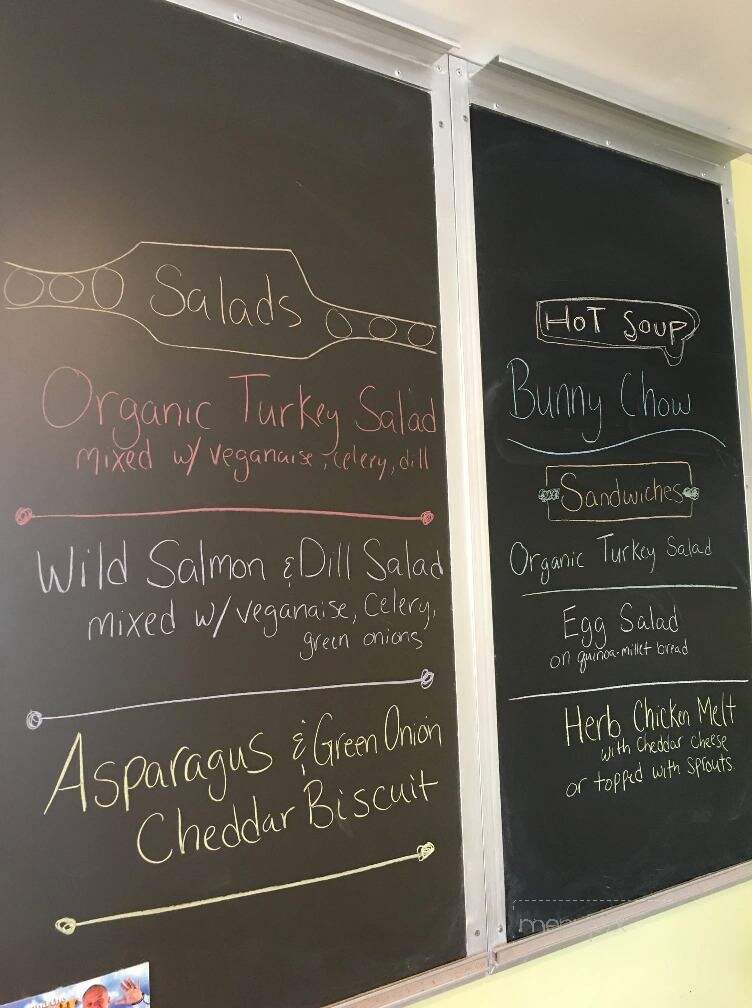 Salads
Organic Turkey Salad
mixed w/ veganaise, celery, dill
Wild Salmon & Dill Salad
mixed w/ veganaise, Celery,
green onions
Asparagus & Green Onion
Cheddar Biscuit
HOT SOUP
Bunny Chow
Sandwiches
Organic Turkey Salad
Egg Salad
on quinoa-millet bread
Herb Chicken Melt
with cheddar cheese
or topped with sprouts
menupix